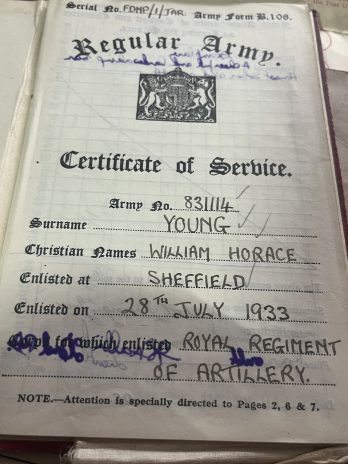 Serial No. FDMP/1/JAR. Army Form B.108.
Regular Army.
Certificate of Service.
Army No. 831114
Surname YOUNG
Christian Names WILLIAM HORACE
Enlisted at SHEFFIELD
Enlisted on 28TH JULY 1933
Corps for which enlisted ROYAL REGIMENT
OF ARTILLERY.
NOTE.—Attention is specially directed to Pages 2, 6 & 7.